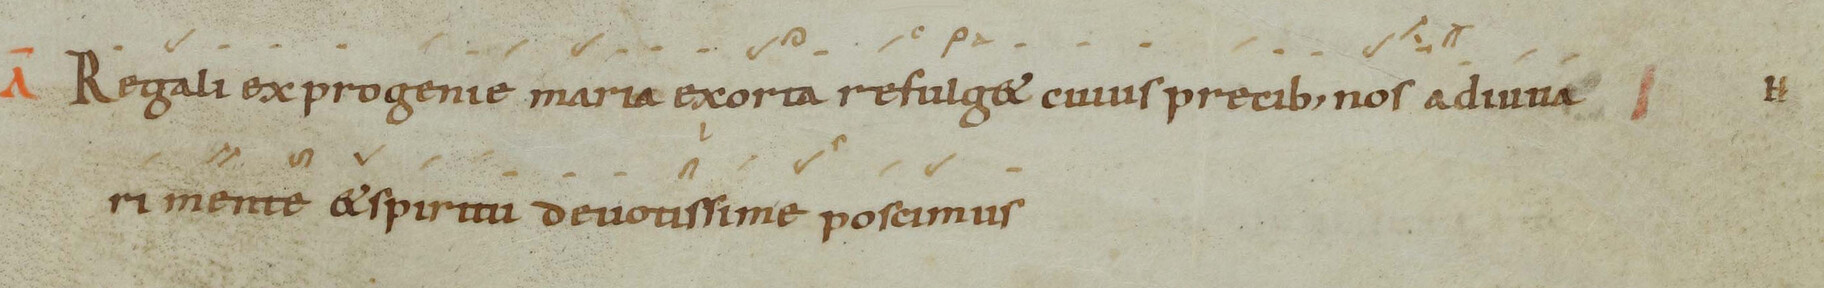 A Regali ex progenie maria exorta refulg& cuius precib, nos adiuua
ri mente & spiritu deuotissime poscimus